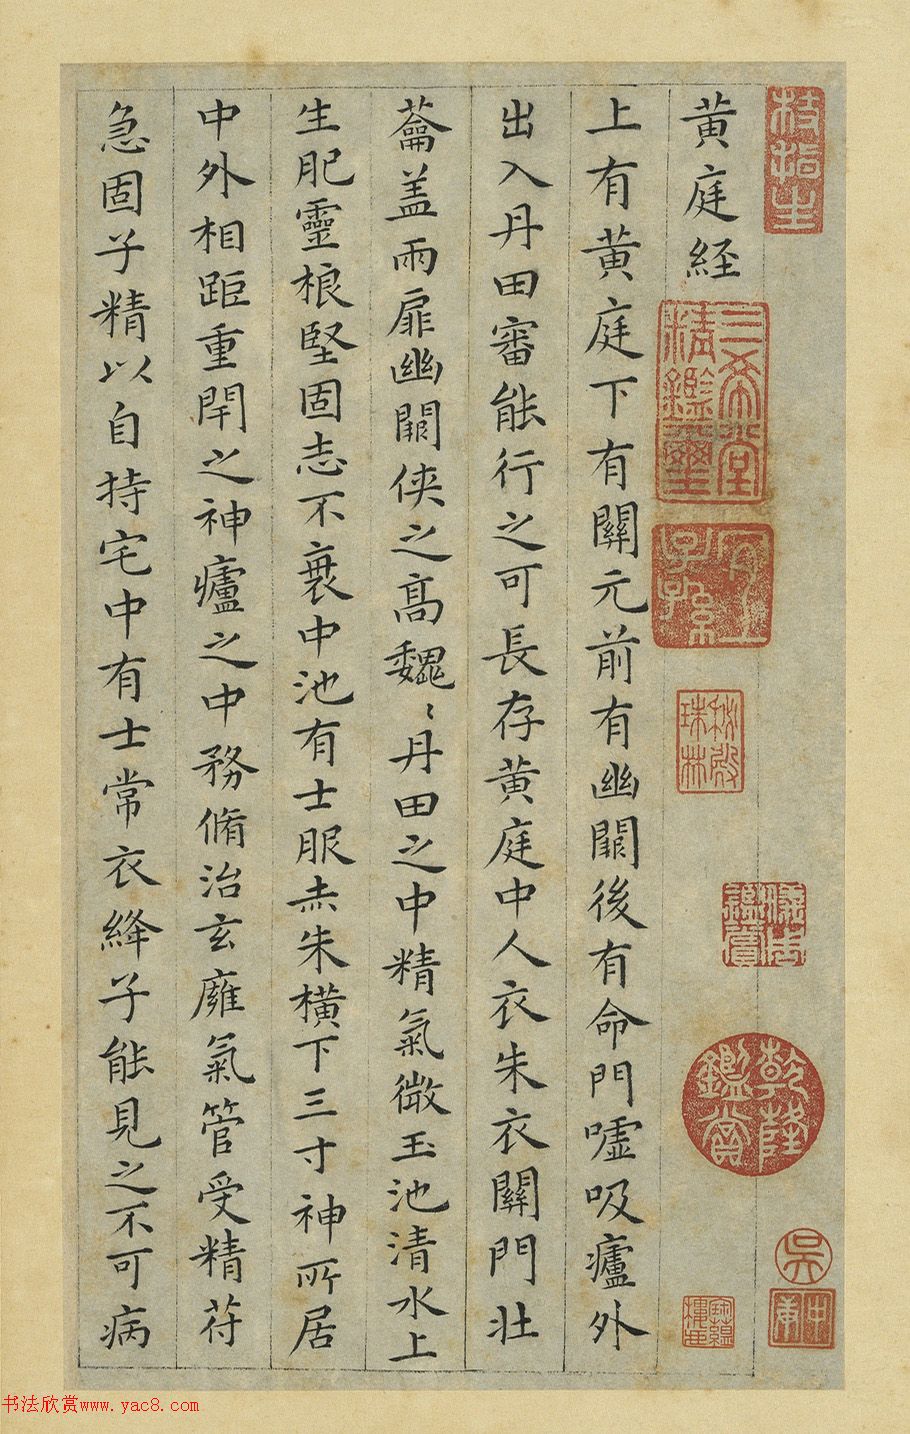 枝指生
黄庭経
三希堂精鑑璽
宜子孫
秘殿珠林
乾隆鑑賞
吳
上有黄庭下有關元前有幽闕後有命門嘘吸廬外
出入丹田審能行之可長存黄庭中人衣朱衣關門壮
蘥盖兩扉幽闕俠之高魏〻丹田之中精氣微玉池清水上
生肥靈根堅固志不衰中池有士服赤朱横下三寸神所居
中外相距重閇之神廬之中務脩治玄廱氣管受精苻
急固子精以自持宅中有士常衣絳子能見之不可病
书法欣赏www.yac8.com